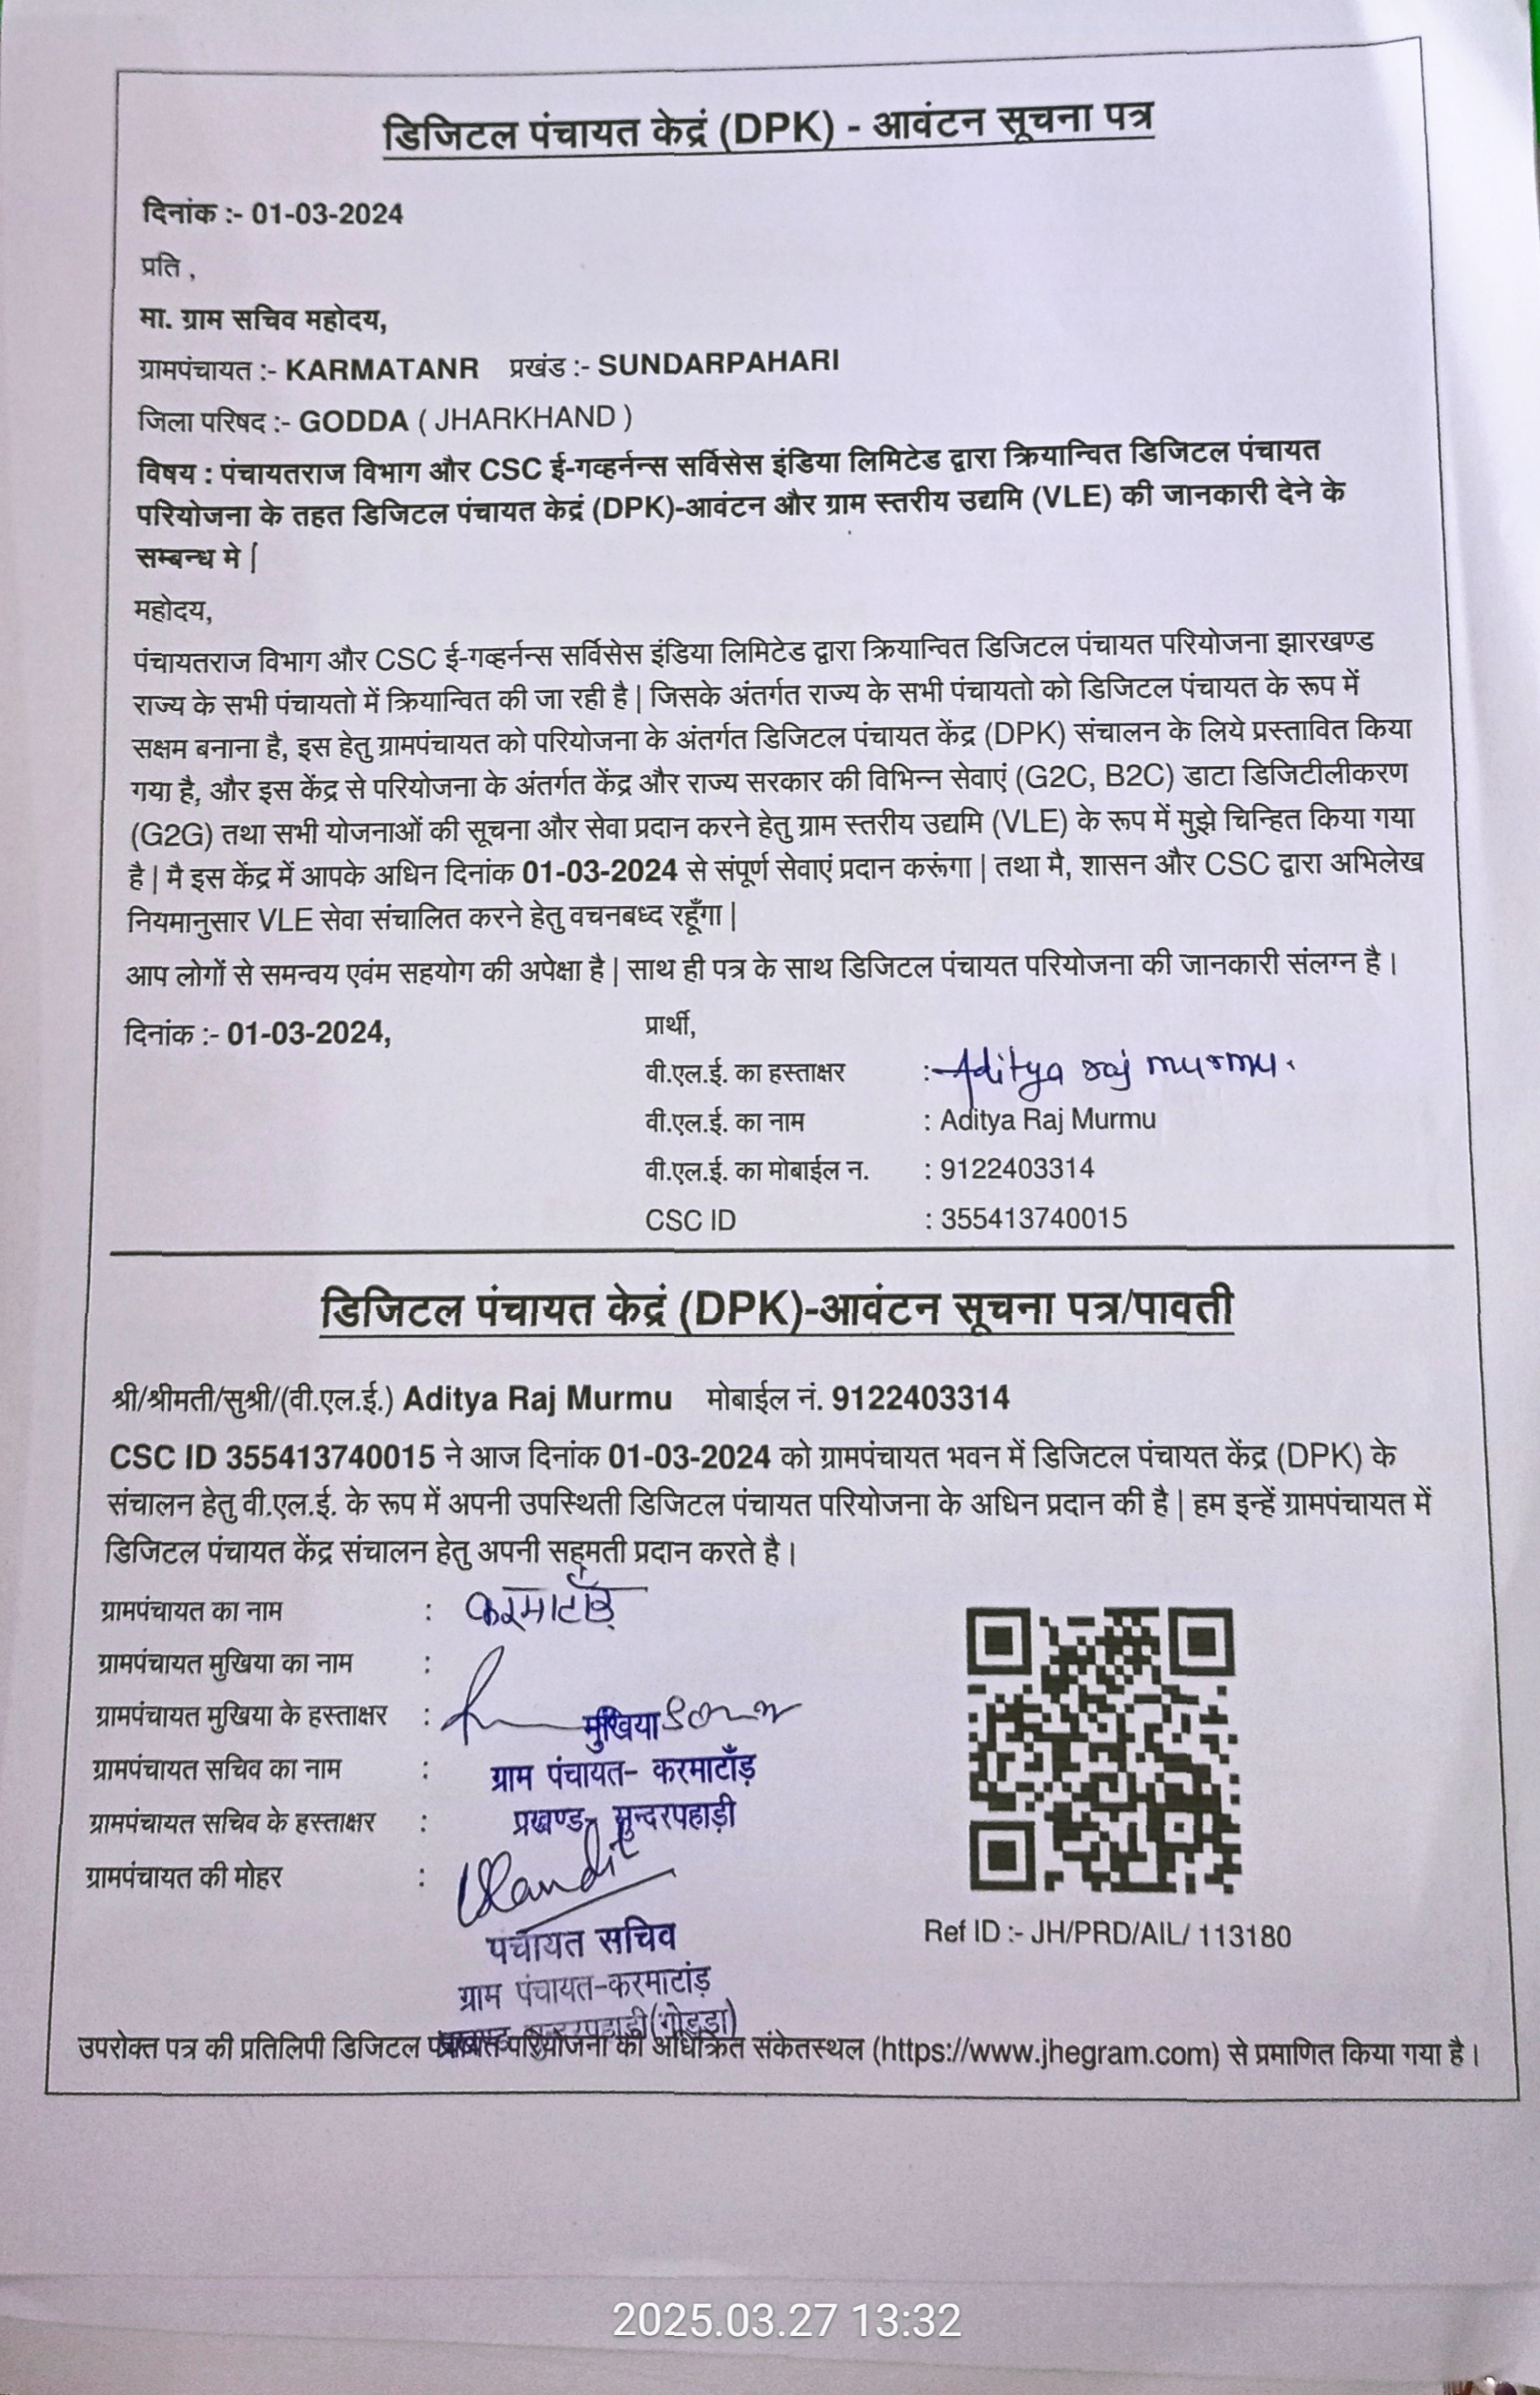 डिजिटल पंचायत केद्रं (DPK) - आवंटन सूचना पत्र
दिनांक :- 01-03-2024
प्रति ,
मा. ग्राम सचिव महोदय,
ग्रामपंचायत :- KARMATANR प्रखंड :- SUNDARPAHARI
जिला परिषद :- GODDA ( JHARKHAND )
विषय : पंचायतराज विभाग और CSC ई-गव्हर्नन्स सर्विसेस इंडिया लिमिटेड द्वारा क्रियान्वित डिजिटल पंचायत
परियोजना के तहत डिजिटल पंचायत केद्रं (DPK)-आवंटन और ग्राम स्तरीय उद्यमि (VLE) की जानकारी देने के
सम्बन्ध मे |
महोदय,
पंचायतराज विभाग और CSC ई-गव्हर्नन्स सर्विसेस इंडिया लिमिटेड द्वारा क्रियान्वित डिजिटल पंचायत परियोजना झारखण्ड
राज्य के सभी पंचायतो में क्रियान्वित की जा रही है | जिसके अंतर्गत राज्य के सभी पंचायतो को डिजिटल पंचायत के रूप में
सक्षम बनाना है, इस हेतु ग्रामपंचायत को परियोजना के अंतर्गत डिजिटल पंचायत केंद्र (DPK) संचालन के लिये प्रस्तावित किया
गया है, और इस केंद्र से परियोजना के अंतर्गत केंद्र और राज्य सरकार की विभिन्न सेवाएं (G2C, B2C) डाटा डिजिटीलीकरण
(G2G) तथा सभी योजनाओं की सूचना और सेवा प्रदान करने हेतु ग्राम स्तरीय उद्यमि (VLE) के रूप में मुझे चिन्हित किया गया
है | मै इस केंद्र में आपके अधिन दिनांक 01-03-2024 से संपूर्ण सेवाएं प्रदान करूंगा | तथा मै, शासन और CSC द्वारा अभिलेख
नियमानुसार VLE सेवा संचालित करने हेतु वचनबध्द रहूँगा |
आप लोगों से समन्वय एवंम सहयोग की अपेक्षा है | साथ ही पत्र के साथ डिजिटल पंचायत परियोजना की जानकारी संलग्न है ।
दिनांक :- 01-03-2024, प्रार्थी,
वी.एल.ई. का हस्ताक्षर : Aditya raj murmu.
वी.एल.ई. का नाम : Aditya Raj Murmu
वी.एल.ई. का मोबाईल न. : 9122403314
CSC ID : 355413740015
डिजिटल पंचायत केद्रं (DPK)-आवंटन सूचना पत्र/पावती
श्री/श्रीमती/सुश्री/(वी.एल.ई.) Aditya Raj Murmu मोबाईल नं. 9122403314
CSC ID 355413740015 ने आज दिनांक 01-03-2024 को ग्रामपंचायत भवन में डिजिटल पंचायत केंद्र (DPK) के
संचालन हेतु वी.एल.ई. के रूप में अपनी उपस्थिती डिजिटल पंचायत परियोजना के अधिन प्रदान की है | हम इन्हें ग्रामपंचायत में
डिजिटल पंचायत केंद्र संचालन हेतु अपनी सहमती प्रदान करते है ।
ग्रामपंचायत का नाम : करमाटाँड़
ग्रामपंचायत मुखिया का नाम :
ग्रामपंचायत मुखिया के हस्ताक्षर : मुखिया
ग्रामपंचायत सचिव का नाम : ग्राम पंचायत- करमाटाँड़
ग्रामपंचायत सचिव के हस्ताक्षर : प्रखण्ड- सुन्दरपहाड़ी
ग्रामपंचायत की मोहर :
पंचायत सचिव
Ref ID :- JH/PRD/AIL/ 113180
ग्राम पंचायत-करमाटांड़
प्रखण्ड-सुन्दरपहाड़ी(गोड्डा)
उपरोक्त पत्र की प्रतिलिपी डिजिटल पंचायत परियोजना की अधिक्रित संकेतस्थल (https://www.jhegram.com) से प्रमाणित किया गया है ।
2025.03.27 13:32